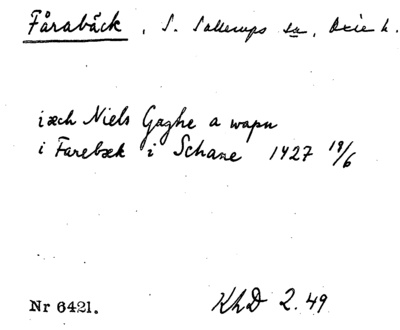 Fårabäck, S. Sallerups sn, Oxie h.
iæch Niels Gaghe a wapn
i Farebæk i Schane 1427 19/6
Nr 6421. KhD 2.49